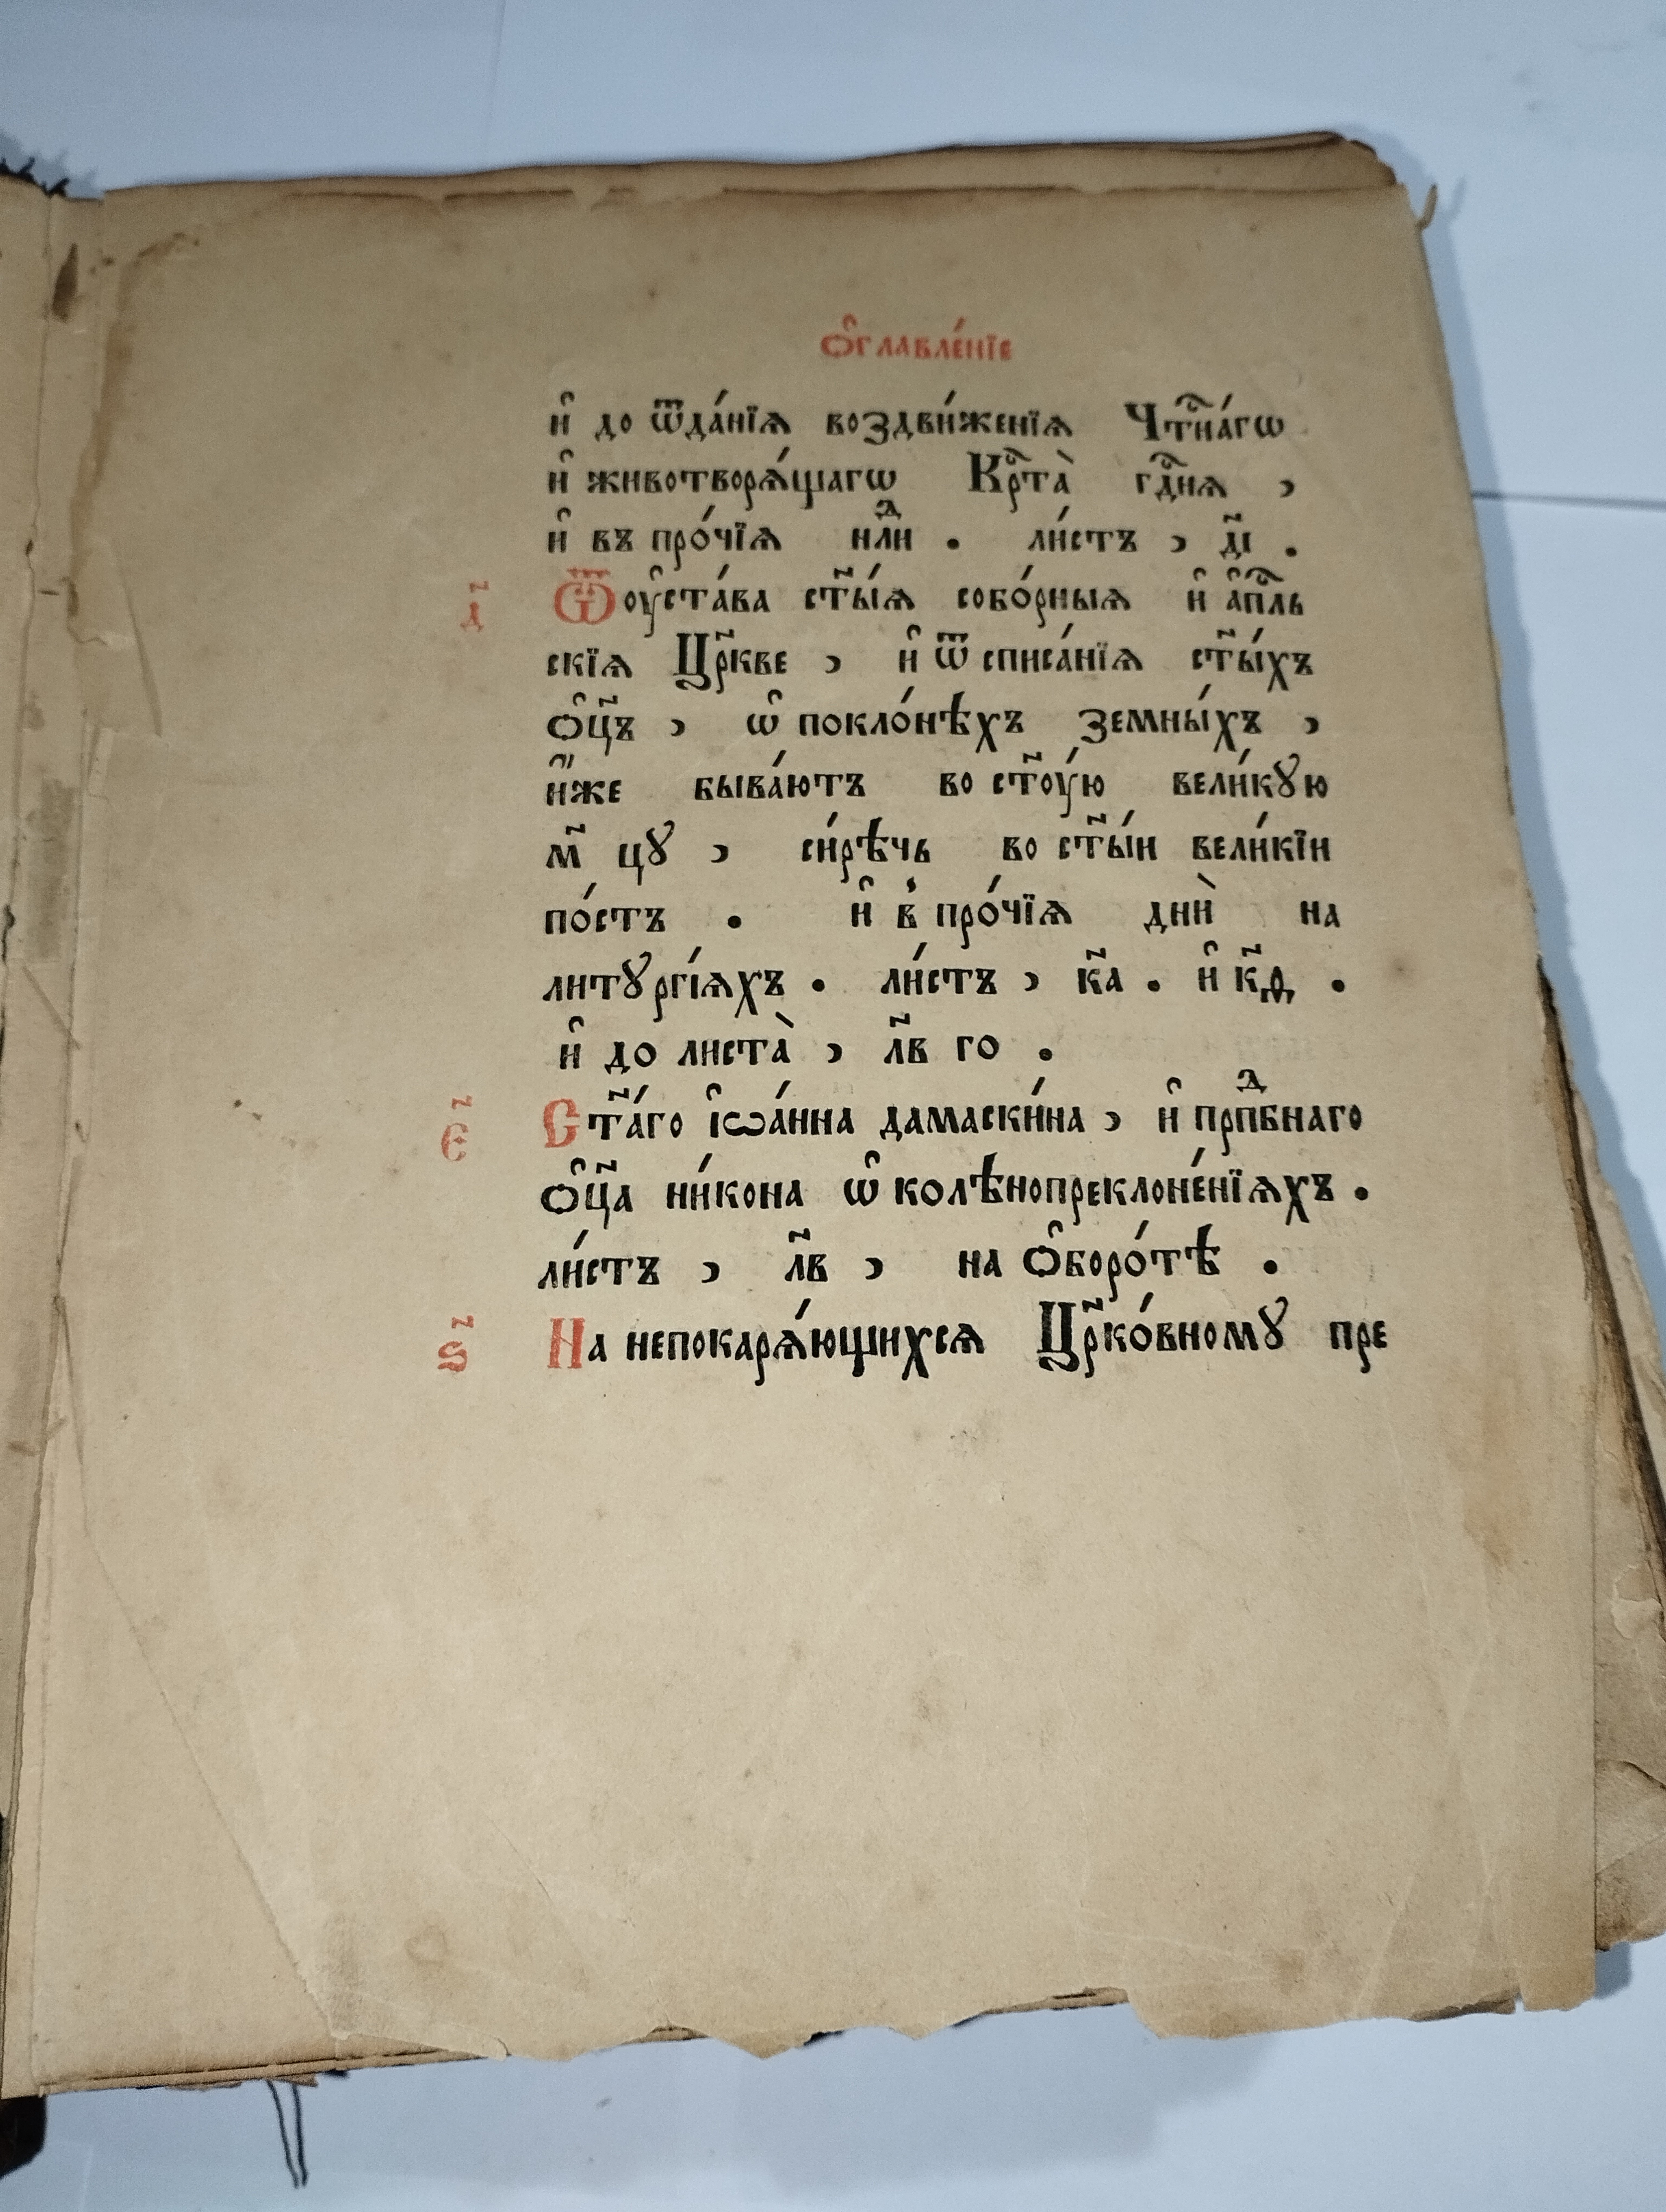 Ѻ҆главле́нїе
и҆ до ѿда́нїѧ воздви́женїѧ Чтⷭ҇на́гѡ
и҆ животворѧ́щагѡ Крⷭ҇та̀ гдⷭ҇нѧ ,
и҆ въ про́чїѧ нлⷣи . ли́стъ , д҃і .
д҃ Ѿ оу҆ста́ва ст҃ы́ѧ собо́рныѧ и҆ а҆пⷭ҇ль
скїѧ Цр҃кве , и҆ ѿ списа́нїѧ ст҃ы́хъ
ѻ҆ц҃ъ , ѡ҆ покло́нѣхъ земны́хъ ,
и҆́же быва́ютъ во ст҃ꙋ́ю вели́кꙋю
м҃ цꙋ , си́рѣчь во ст҃ы́и вели́кїи
по́стъ . и҆ в̾ про́чїѧ дни̑ на
литꙋргі́ѧхъ . ли́стъ , к҃а . и҆ к҃д .
и҆ до листа̀ , л҃в го .
є҃ Ст҃а́го і҆ѡа́нна дамаски́на , и҆ прпⷣбнаго
ѻ҆ц҃а ни́кона ѡ҆ колѣнопреклоне́нїѧхъ .
ли́стъ , л҃в , на ѻ҆боро́тѣ .
ѕ҃ На непокарѧ́ющихсѧ Цр҃ко́вномꙋ пре